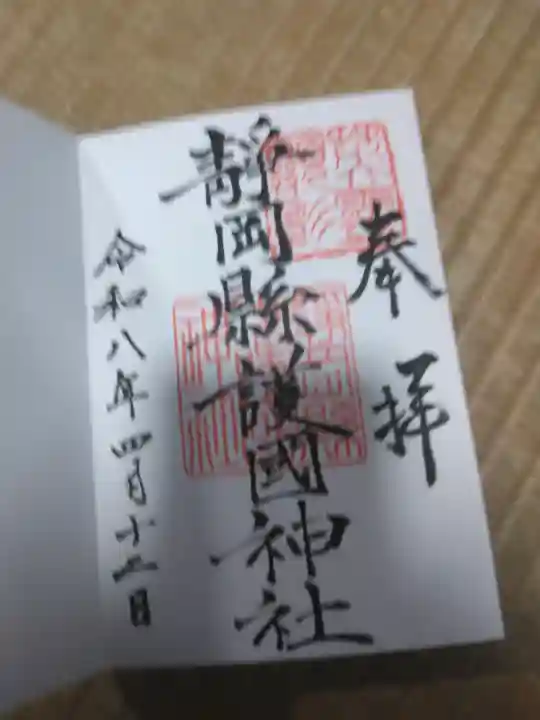 奉拝
靜岡縣護國神社
令和八年四月十五日